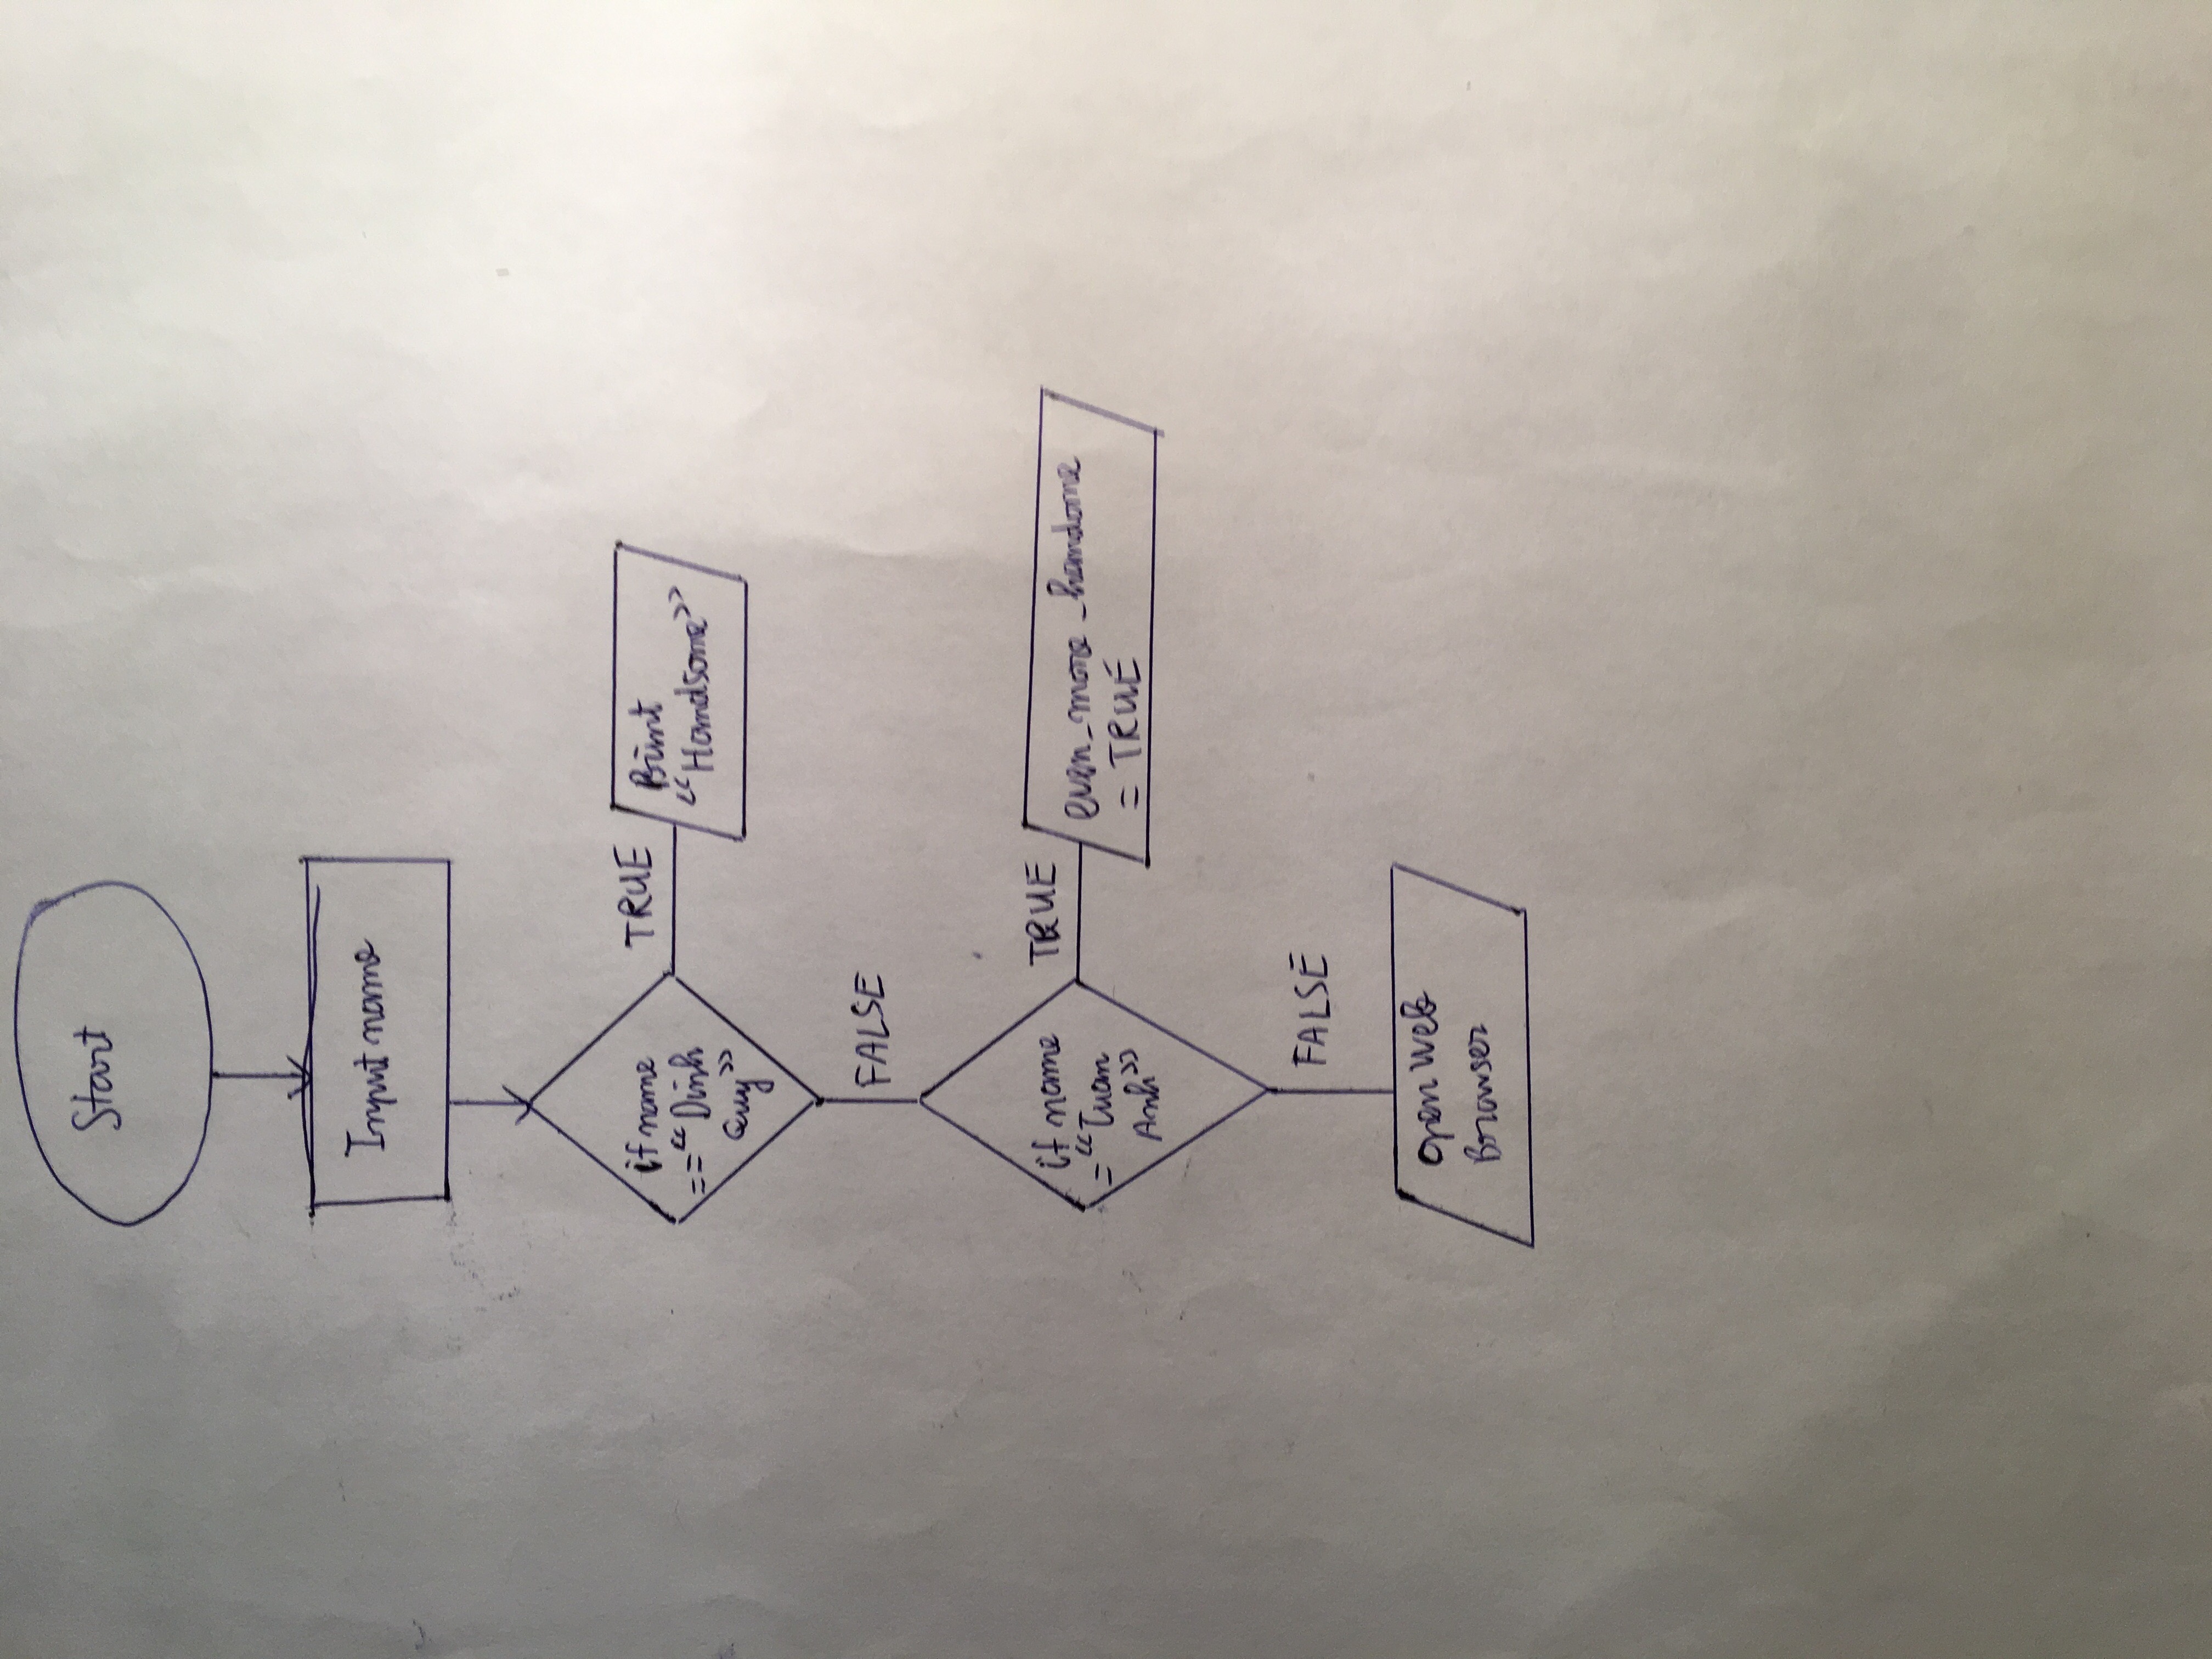 Start
Input name
if name
=="Dinh
Quy"
TRUE
Print
"Handsome"
FALSE
if name
="Tuan
Anh"
TRUE
even_more_handome
= TRUE
FALSE
open Web
Browser